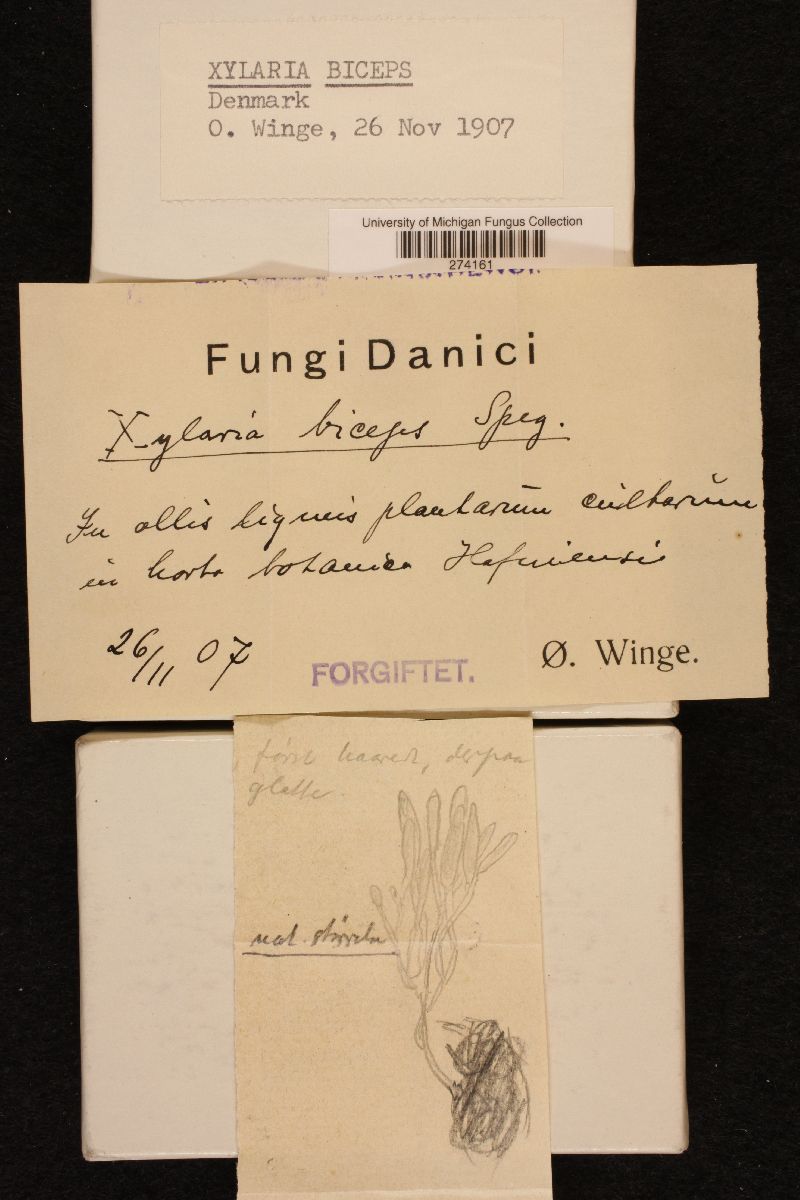 XYLARIA BICEPS
Denmark
O. Winge, 26 Nov 1907
University of Michigan Fungus Collection
274161
Fungi Danici
Xylaria biceps Speg.
In ollis ligneis plantarūm cūltarūm
in horto botanico Hafniensi
26/11 07
FORGIFTET.
Ø. Winge.
först haarede, derpaa
glatte.
nat. störrelse